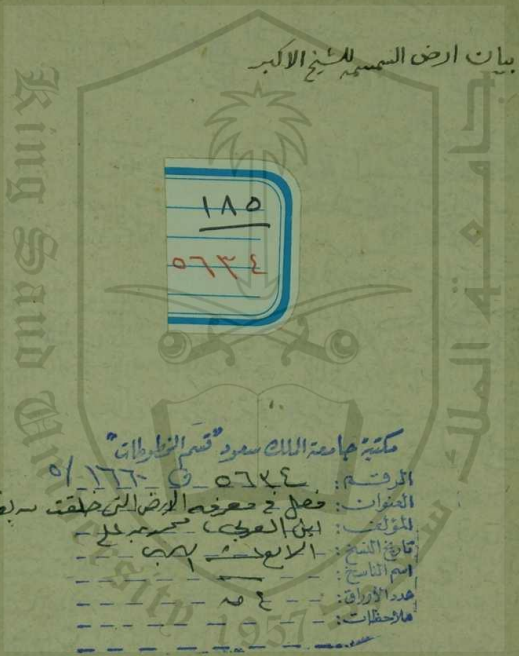 بيان ارض السمسمه للشيخ الاكبر
King Saud University
جامعة الملك سعود
١٨٥
٥٦٣٤
مكتبة جامعة الملك سعود "قسم المخطوطات"
الرقم: ٥٦٣٤ ف ١٦٦٠/٥
العنوان: فصل في معرفة الارض التي خلقت من بق
المؤلف: ابن العربي، محمد بن علي
تاريخ النسخ: الرابع عشر الهجري
اسم الناسخ:
عدد الأوراق: ٤ ص
ملاحظات:
1957